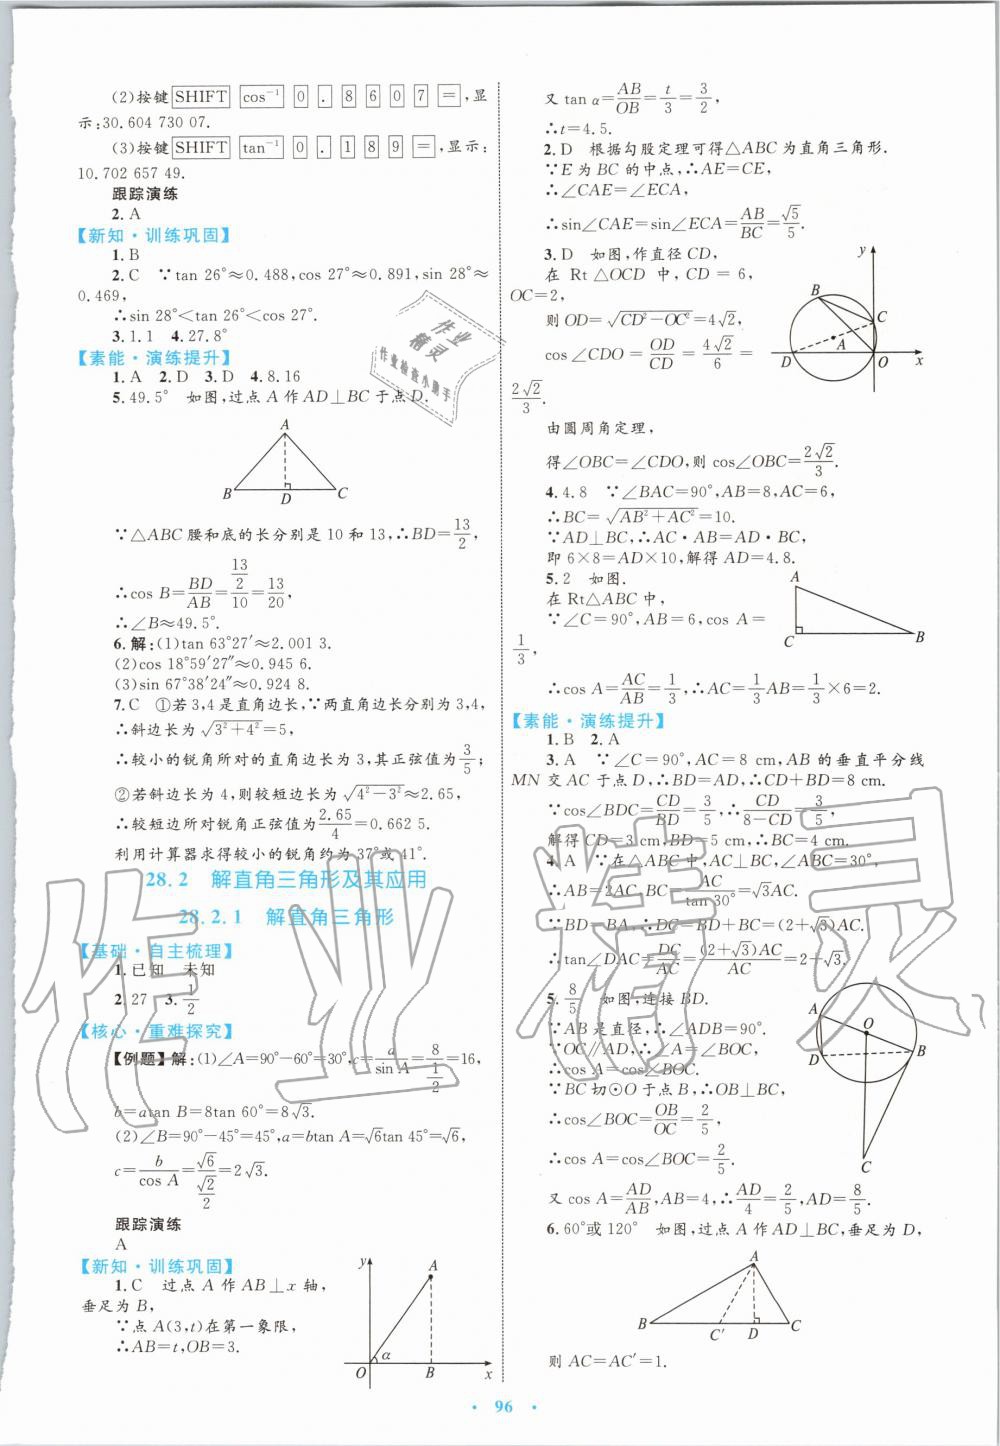 (2)按键 SHIFT cos⁻¹ 0 . 8 6 0 7 =,显
示:30.604 730 07.
(3)按键 SHIFT tan⁻¹ 0 . 1 8 9 =,显示:
10.702 657 49.
跟踪演练
2. A
【新知·训练巩固】
1. B
2. C ∵tan 26°≈0.488,cos 27°≈0.891,sin 28°≈
0.469,
∴sin 28°<tan 26°<cos 27°.
3. 1.1 4. 27.8°
【素能·演练提升】
1. A 2. D 3. D 4. 8.16
5. 49.5° 如图,过点 A 作 AD⊥BC 于点 D.
A
B D C
∵△ABC 腰和底的长分别是 10 和 13,∴BD=13/2,
∴cos B=BD/AB=(13/2)/10=13/20,
∴∠B≈49.5°.
6. 解:(1)tan 63°27′≈2.001 3.
(2)cos 18°59′27″≈0.945 6.
(3)sin 67°38′24″≈0.924 8.
7. C ①若3,4是直角边长,∵两直角边长为3,4,
∴斜边长为√(3²+4²)=5,
∴较小的锐角所对的直角边长为3,其正弦值为3/5;
②若斜边长为4,则较短边长为√(4²-3²)≈2.65,
∴较短边所对锐角正弦值为2.65/4=0.662 5.
利用计算器求得较小的锐角约为37°或41°.
28.2 解直角三角形及其应用
28.2.1 解直角三角形
【基础·自主梳理】
1. 已知 未知
2. 27 3. 1/2
【核心·重难探究】
【例题】解:(1)∠A=90°-60°=30°,c=a/sin A=8/(1/2)=16,
b=atan B=8tan 60°=8√3.
(2)∠B=90°-45°=45°,a=btan A=√6tan 45°=√6,
c=b/cos A=√6/(√2/2)=2√3.
跟踪演练
A
【新知·训练巩固】
1. C 过点 A 作 AB⊥x 轴,
垂足为 B,
∵点A(3,t)在第一象限,
∴AB=t,OB=3.
y A
α
O B x
又 tan α=AB/OB=t/3=3/2,
∴t=4.5.
2. D 根据勾股定理可得△ABC 为直角三角形.
∵E 为 BC 的中点,∴AE=CE,
∴∠CAE=∠ECA,
∴sin∠CAE=sin∠ECA=AB/BC=√5/5.
3. D 如图,作直径 CD,
在 Rt△OCD 中,CD=6,
OC=2,
则 OD=√(CD²-OC²)=4√2,
cos∠CDO=OD/CD=4√2/6=
2√2/3.
y
B
C
A
D O x
由圆周角定理,
得∠OBC=∠CDO,则 cos∠OBC=2√2/3.
4. 4.8 ∵∠BAC=90°,AB=8,AC=6,
∴BC=√(AB²+AC²)=10.
∵AD⊥BC,∴AC·AB=AD·BC,
即 6×8=AD×10,解得 AD=4.8.
5. 2 如图.
在 Rt△ABC 中,
∵∠C=90°,AB=6,cos A=
1/3,
A
C B
∴cos A=AC/AB=1/3,∴AC=1/3AB=1/3×6=2.
【素能·演练提升】
1. B 2. A
3. A ∵∠C=90°,AC=8 cm,AB 的垂直平分线
MN 交 AC 于点 D,∴BD=AD,∴CD+BD=8 cm.
∵cos∠BDC=CD/BD=3/5,∴CD/(8-CD)=3/5,
解得 CD=3 cm,BD=5 cm,∴BC=4 cm.
4. A ∵在△ABC 中,AC⊥BC,∠ABC=30°,
∴AB=2AC,BC=AC/tan 30°=√3AC.
∵BD=BA,∴DC=BD+BC=(2+√3)AC,
∴tan∠DAC=DC/AC=(2+√3)AC/AC=2+√3.
5. 8/5 如图,连接 BD.
∵AB 是直径,∴∠ADB=90°.
∵OC∥AD,∴∠A=∠BOC,
∴cos A=cos∠BOC.
∵BC 切⊙O 于点 B,∴OB⊥BC,
∴cos∠BOC=OB/OC=2/5,
∴cos A=cos∠BOC=2/5.
A O
D B
C
又 cos A=AD/AB,AB=4,∴AD/4=2/5,AD=8/5.
6. 60°或 120° 如图,过点 A 作 AD⊥BC,垂足为 D,
A
B C′ D C
则 AC=AC′=1.
· 96 ·
作业
精灵
作业检查小助手
作业精灵